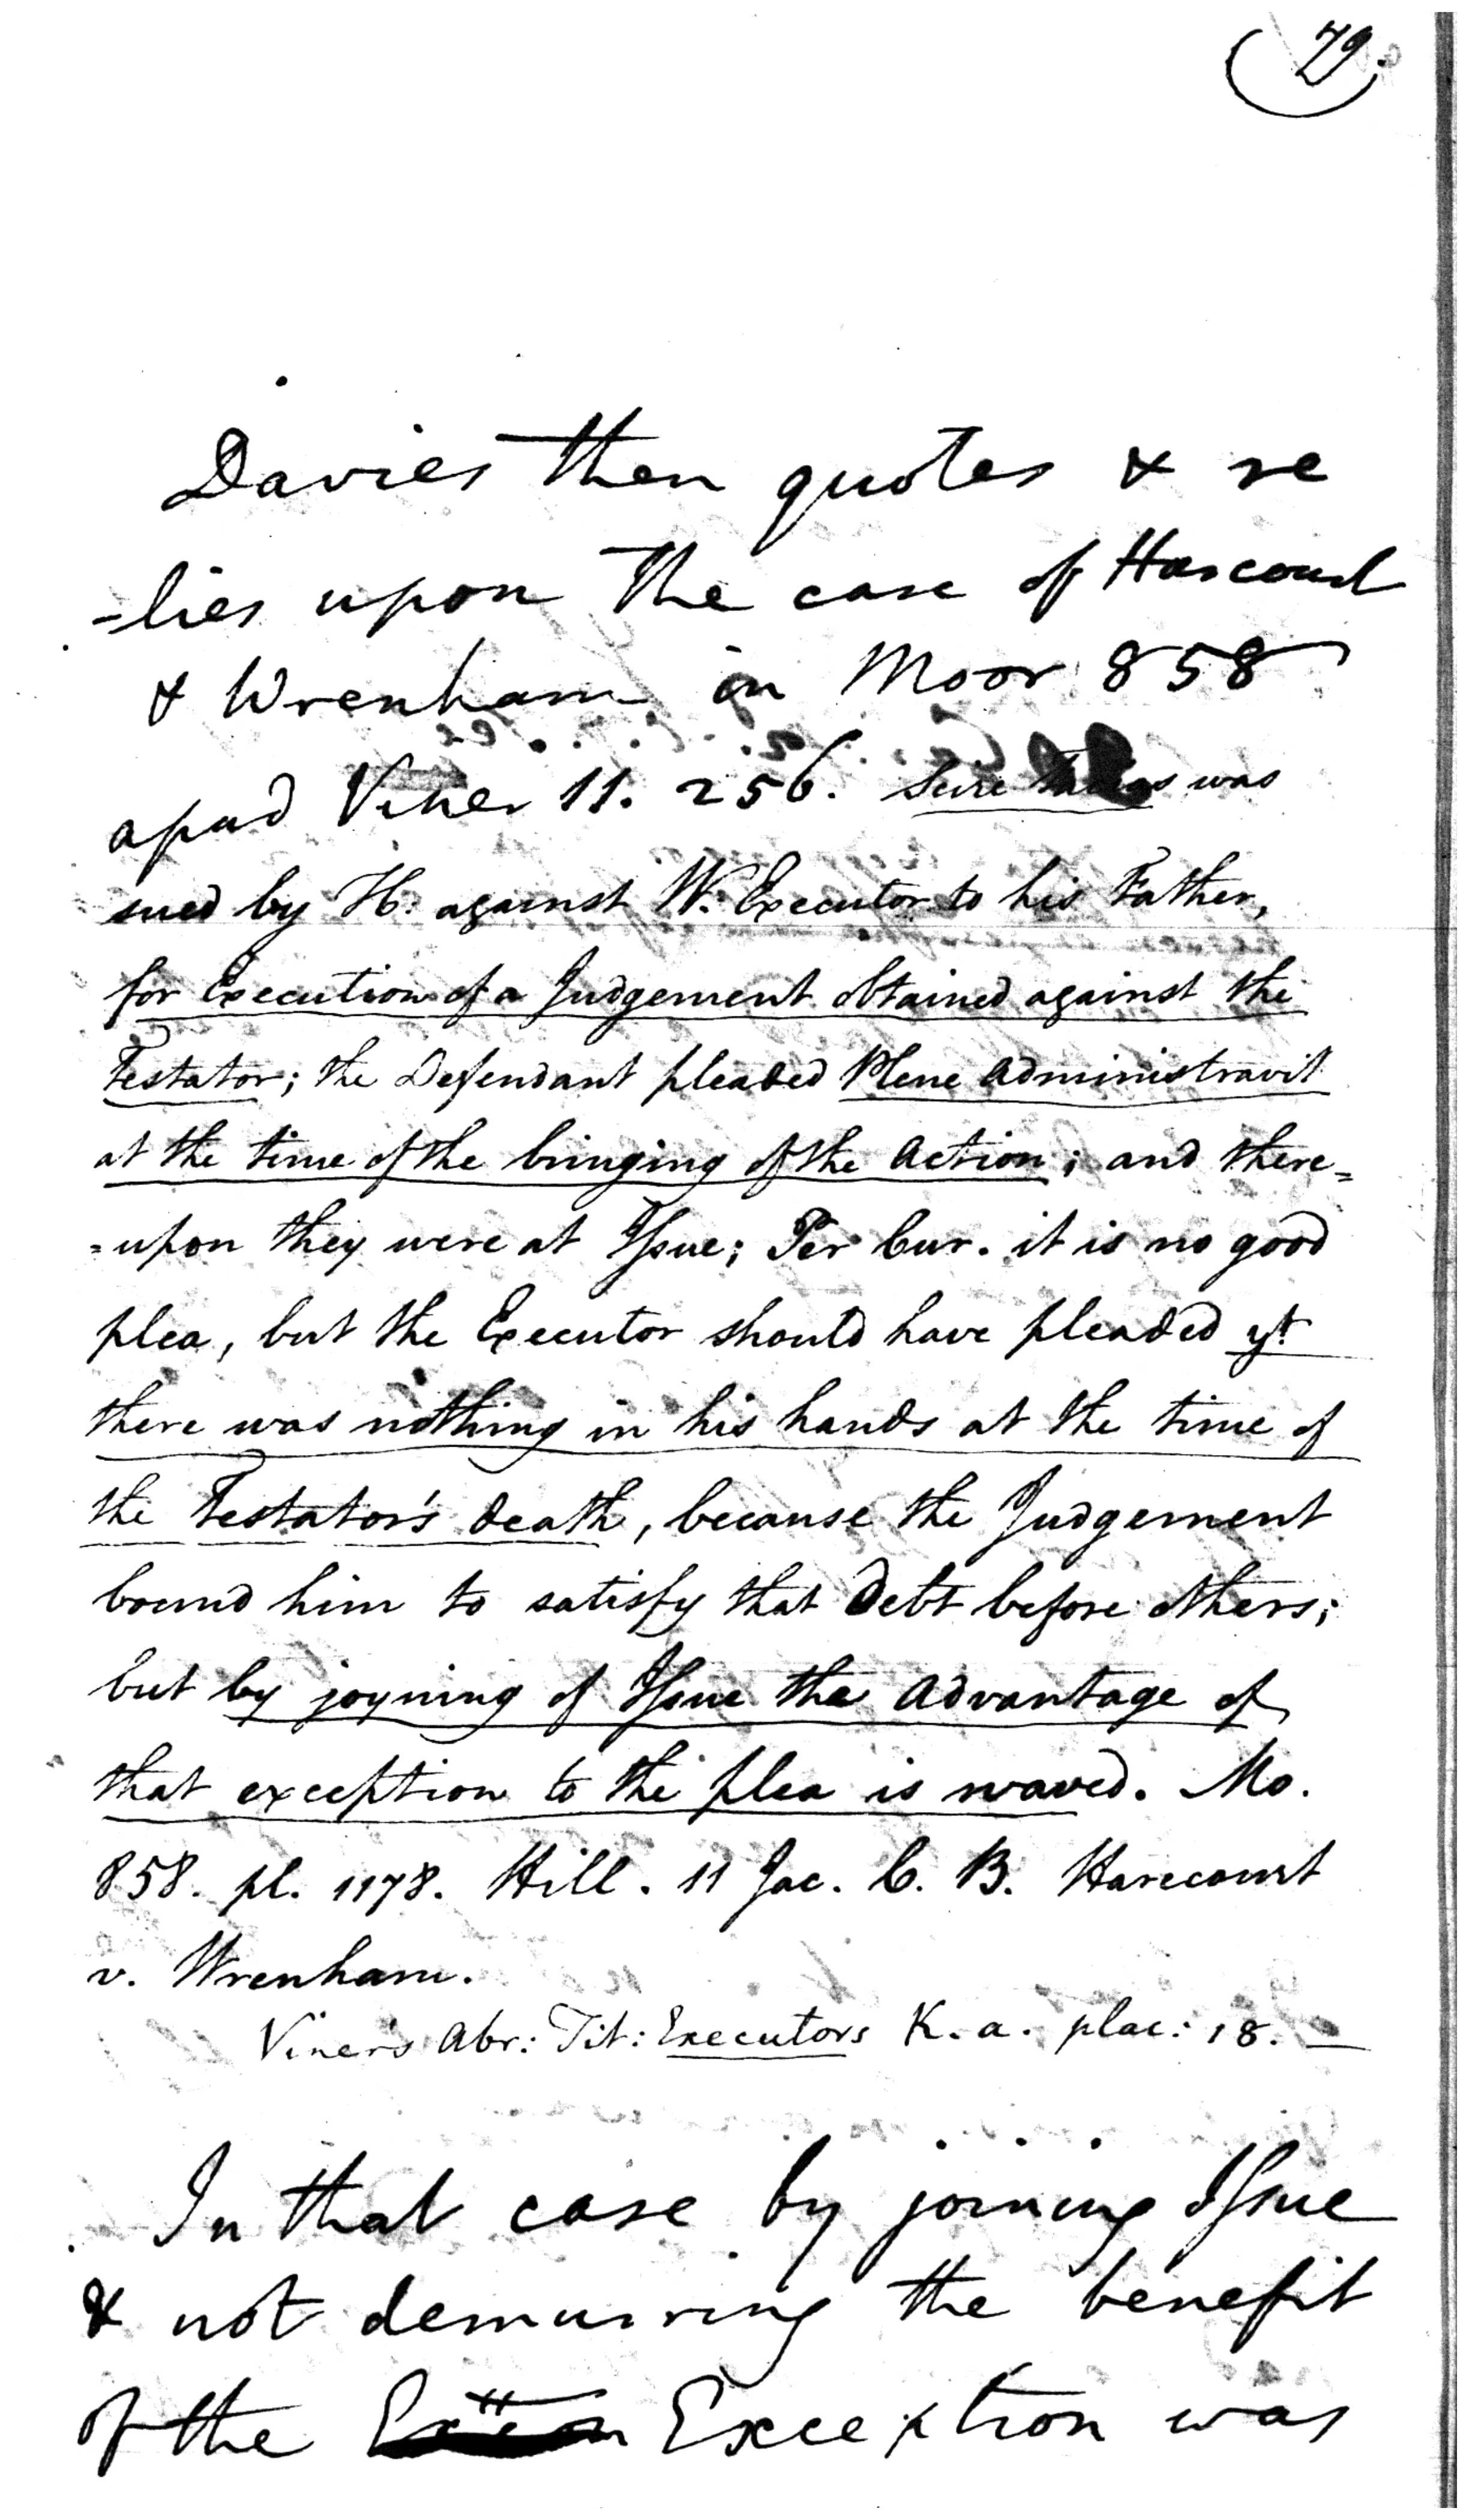 79.
Davies then quotes & re
-lies upon the case of Harcourt
& Wrenham in Moor 858
apud Viner 11. 256. Scire facias was
sued by H. against W. Executor to his Father,
for Execution of a Judgement obtained against the
Testator; the Defendant pleaded Plene Administravit
at the time of the bringing of the Action; and there=
=upon they were at Issue; Per Cur. it is no good
plea, but the Executor should have pleaded yt
there was nothing in his hands at the time of
the Testator's death, because the Judgement
bound him to satisfy that Debt before others;
but by joyning of Issue the Advantage of
that exception to the plea is waved. Mo.
858. pl. 1178. Hill. 11 Jac. C. B. Harecourt
v. Wrenham.
Viner's Abr: Tit: Executors K. a. plac: 18. —
In that case by joining Issue
& not demurring the benefit
of the Exception was